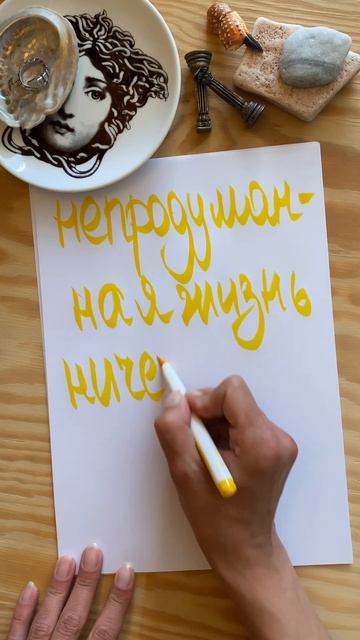 непродуман-
ная жизнь
ниче